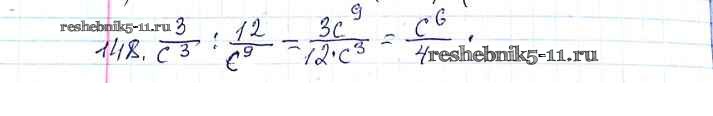 reshebnik5-11.ru
148. 3/c³ : 12/c⁹ = 3c⁹/12·c³ = c⁶/4.
reshebnik5-11.ru